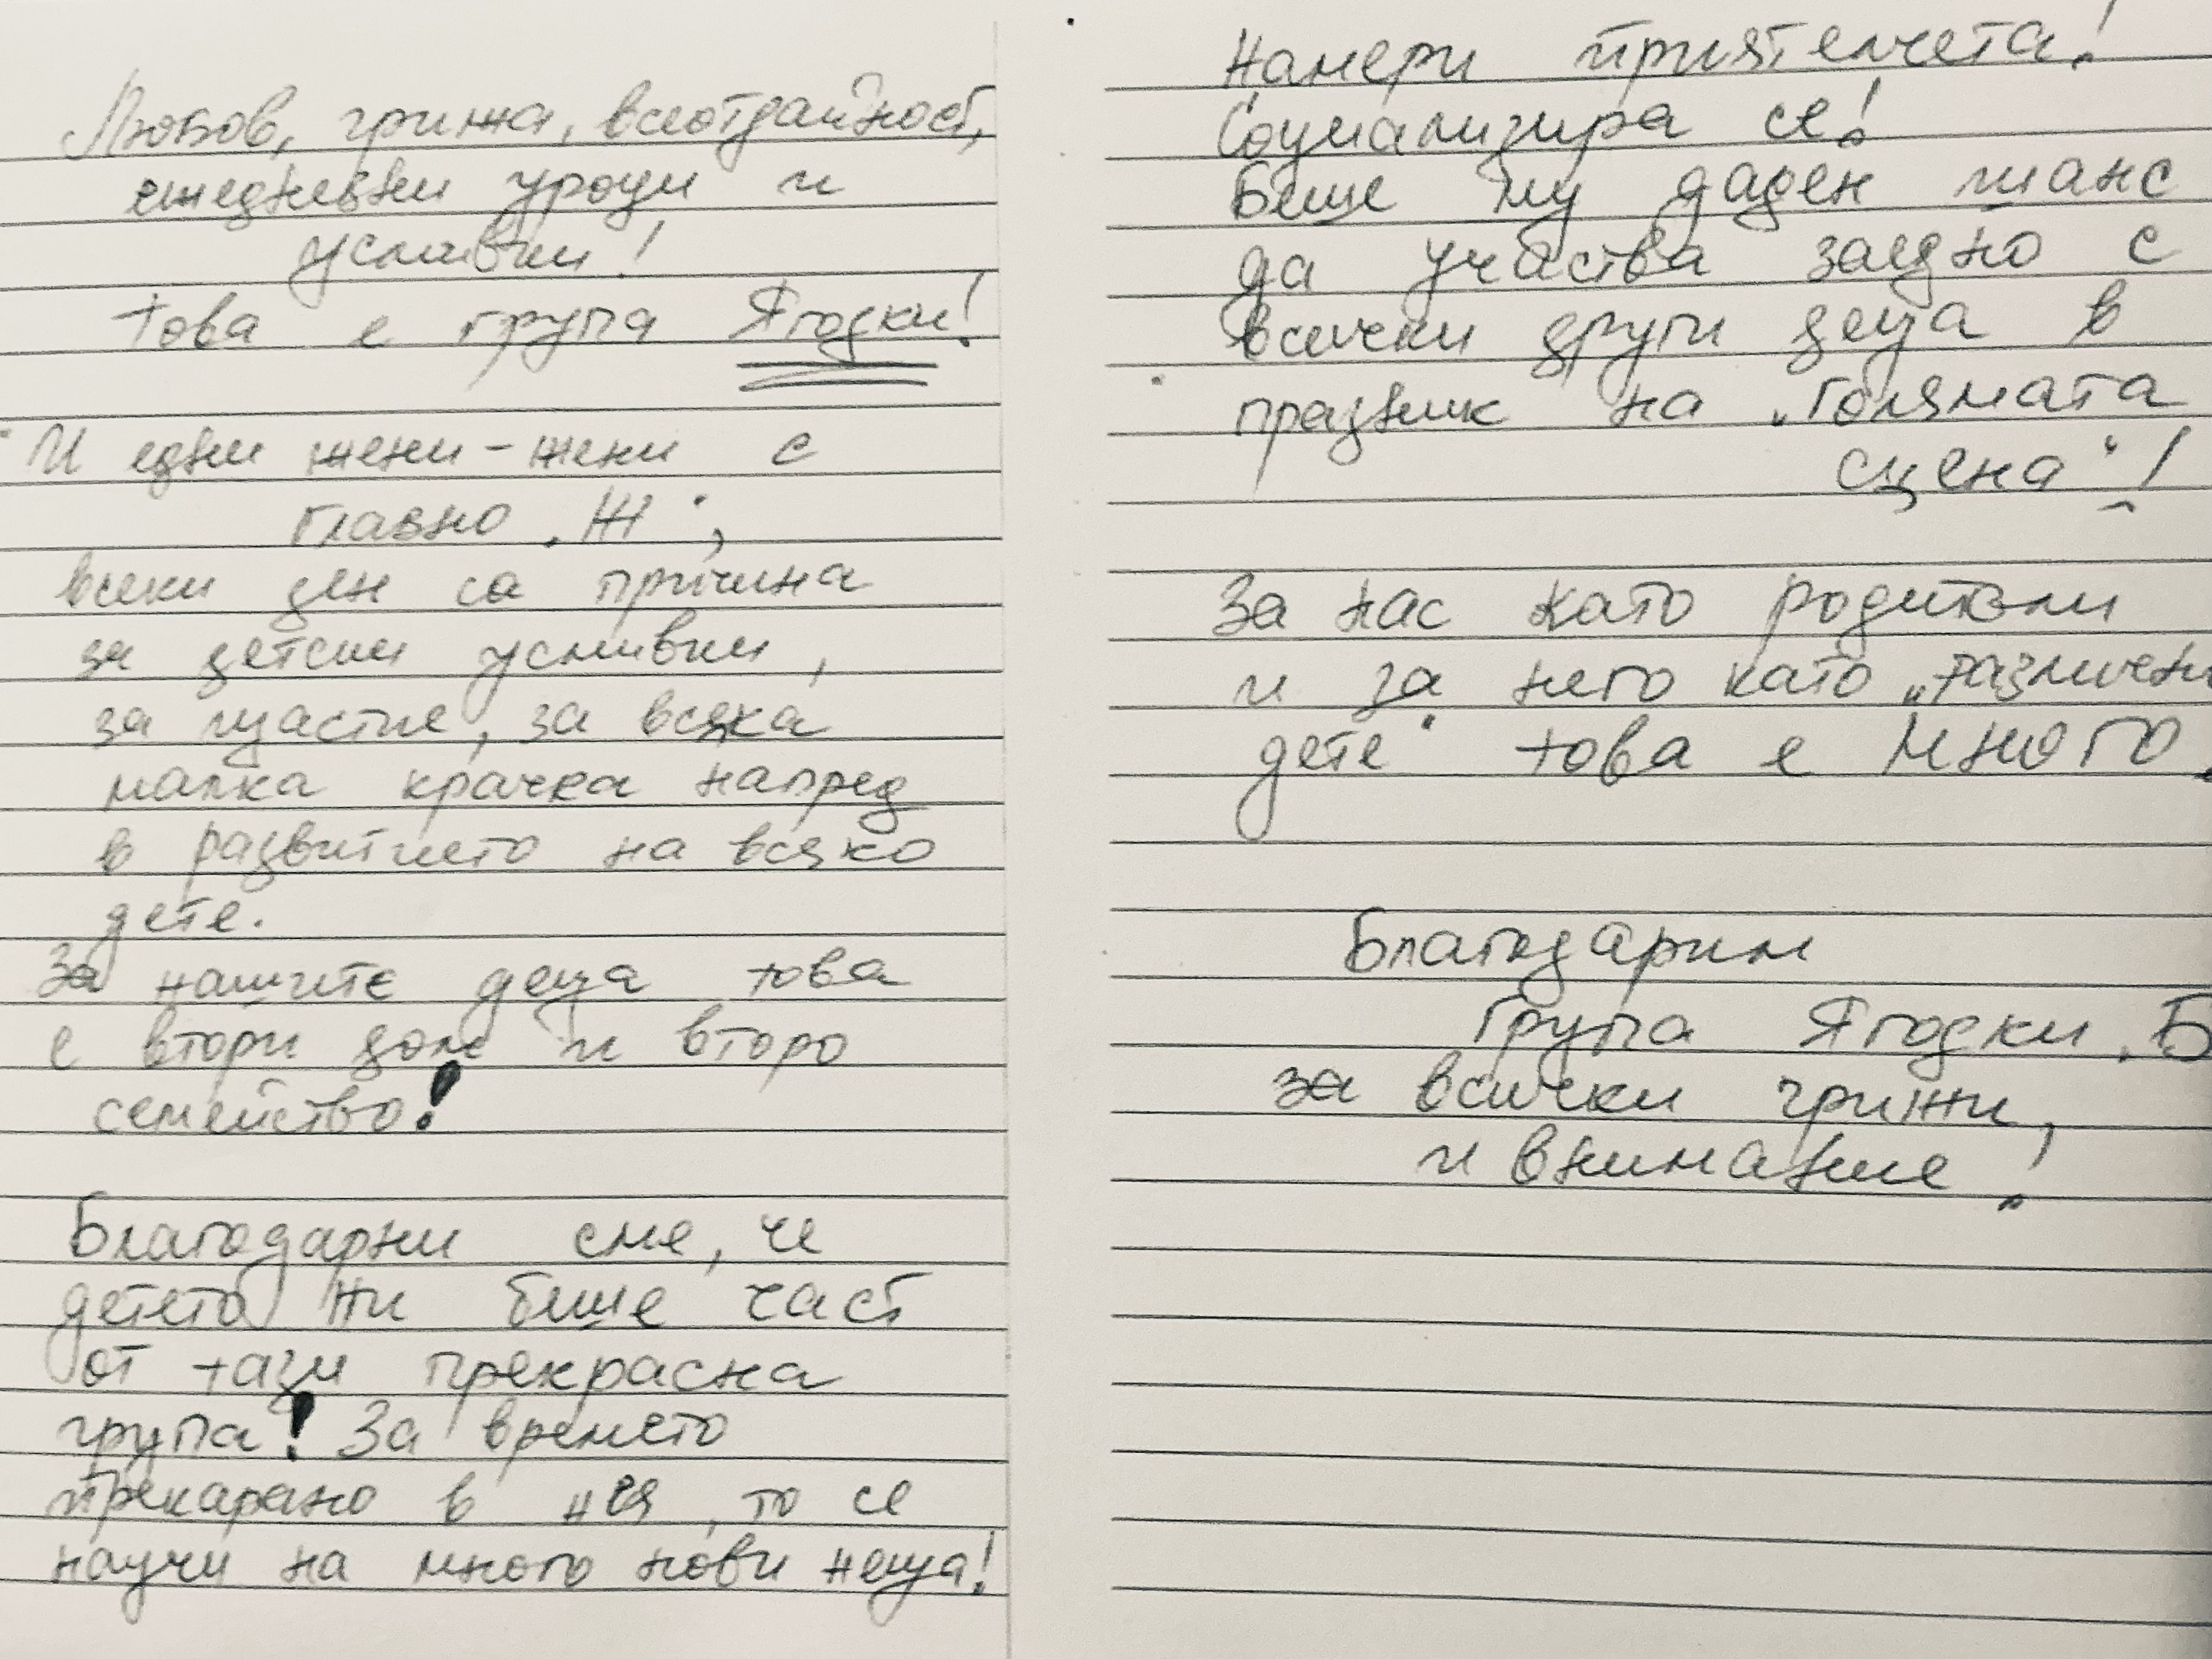 Любов, грижа, всеотдайност,
ежедневни уроци и
усмивки!
Това е група Ягодки!
И едни жени - жени с
главно „Ж“,
всеки ден са причина
за детски усмивки,
за щастие, за всяка
малка крачка напред
в развитието на всяко
дете.
За нашите деца това
е втори дом и второ
семейство!
Благодарни сме, че
детето ни беше част
от тази прекрасна
група! За времето
прекарано в нея, то се
научи на много нови неща!
Намери приятелчета!
Социализира се!
Беше му даден шанс
да участва заедно с
всички други деца в
празник на „Голямата
сцена“!
За нас като родители
и за него като „различно
дете“ това е МНОГО.
Благодарим
Група Ягодки „Б
за всички грижи,
и внимание!